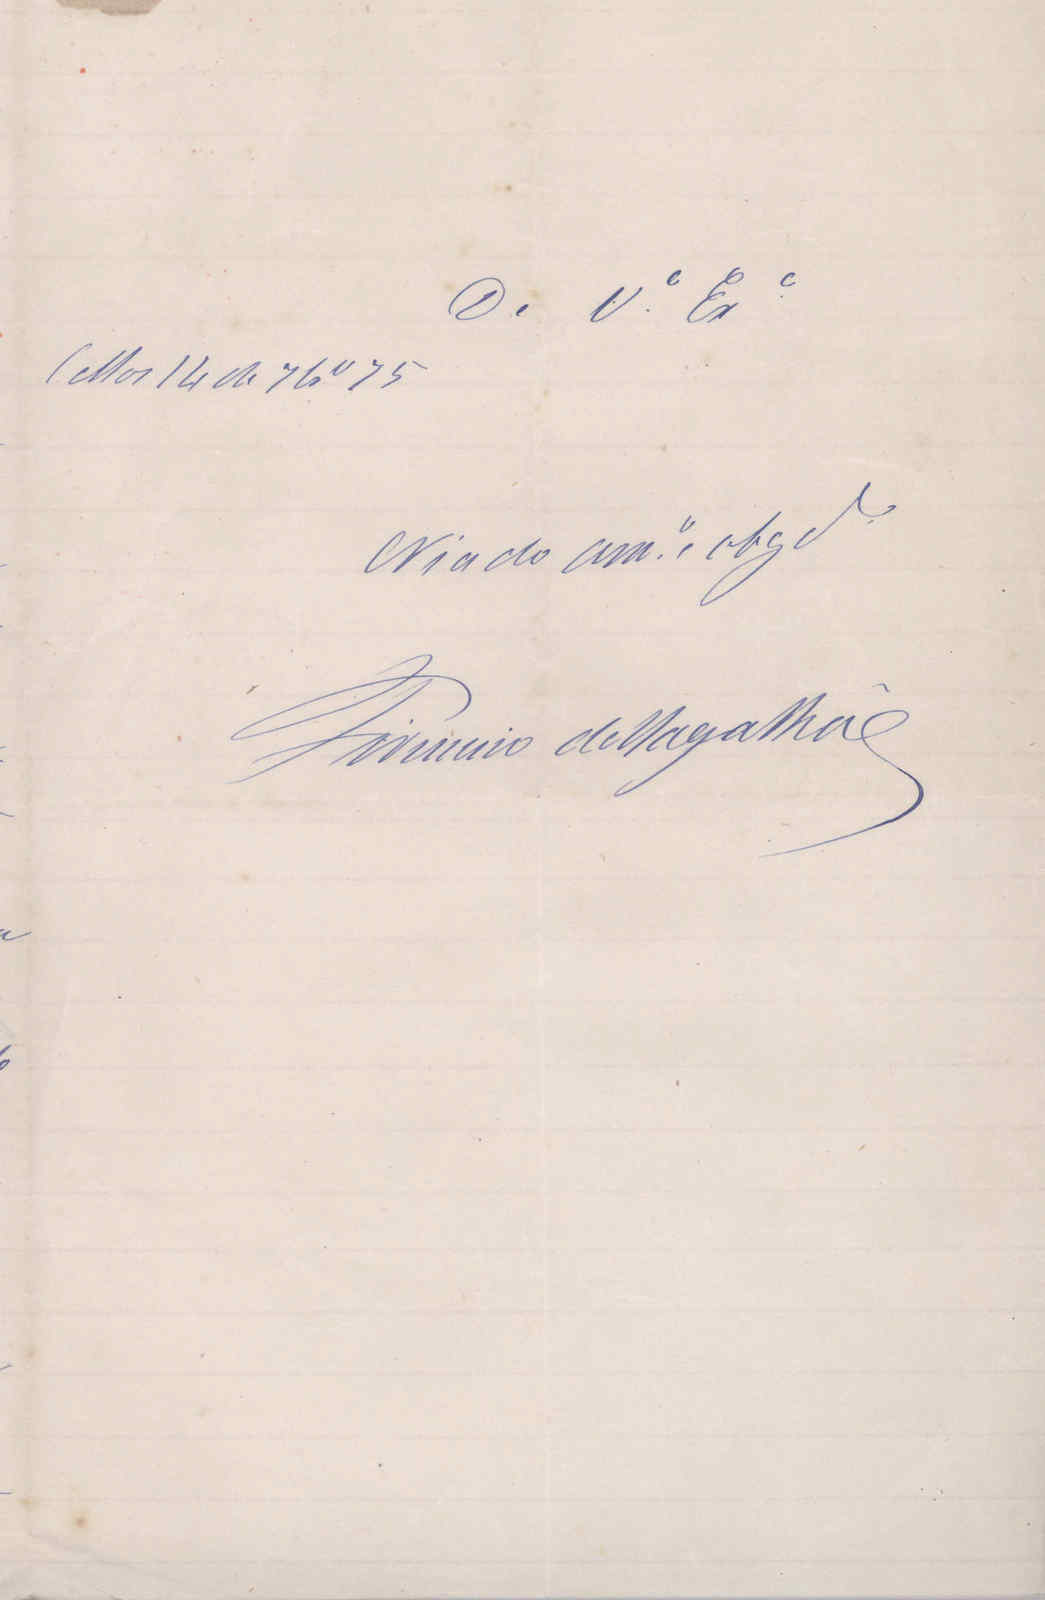 De V.ª Ex.ª
Cellos 14 de 7bro 75
Criado am.º e obgd.º
Firmino de Magalhães